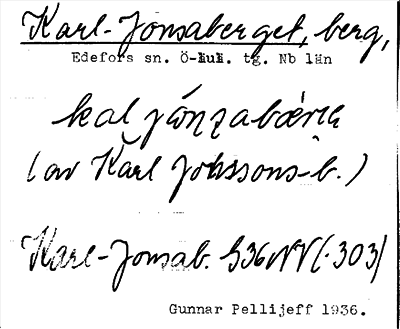 Karl-Jonsaberget, berg,
Edefors sn. Ö-Lul. tg. Nb län
kal jónsabǽrıɛ
(av Karl Johssons-b.)
Karl-Jonsab. S36NV(·303)
Gunnar Pellijeff 1936.